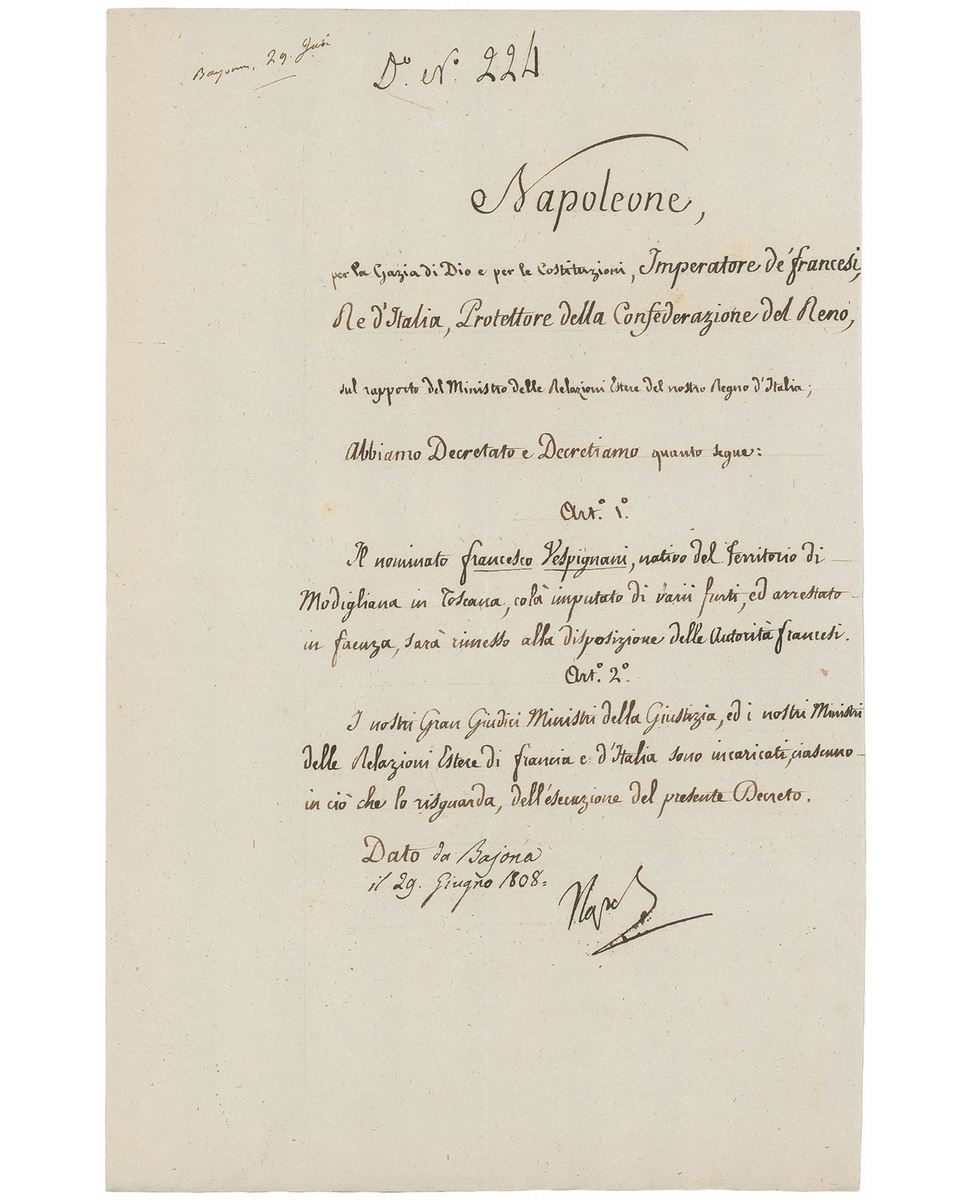 Bayonne, 29. Juin
D.º N.º 224
Napoleone,
per la Grazia di Dio e per le Costituzioni, Imperatore de' francesi,
Re d'Italia, Protettore della Confederazione del Reno,
sul rapporto del Ministro delle Relazioni Estere del nostro Regno d'Italia;
Abbiamo Decretato e Decretiamo quanto segue:
Art.º 1.º
Il nominato francesco Vespignani, nativo del Territorio di
Modigliana in Toscana, colà imputato di varii furti, ed arrestato
in faenza, sarà rimesso alla disposizione delle Autorità francesi.
Art.º 2.º
I nostri Gran Giudici Ministri della Giustizia, ed i nostri Ministri
delle Relazioni Estere di francia e d'Italia sono incaricati, ciascuno
in ciò che lo risguarda, dell'esecuzione del presente Decreto.
Dato da Bajona
il 29. Giugno 1808.
Napol